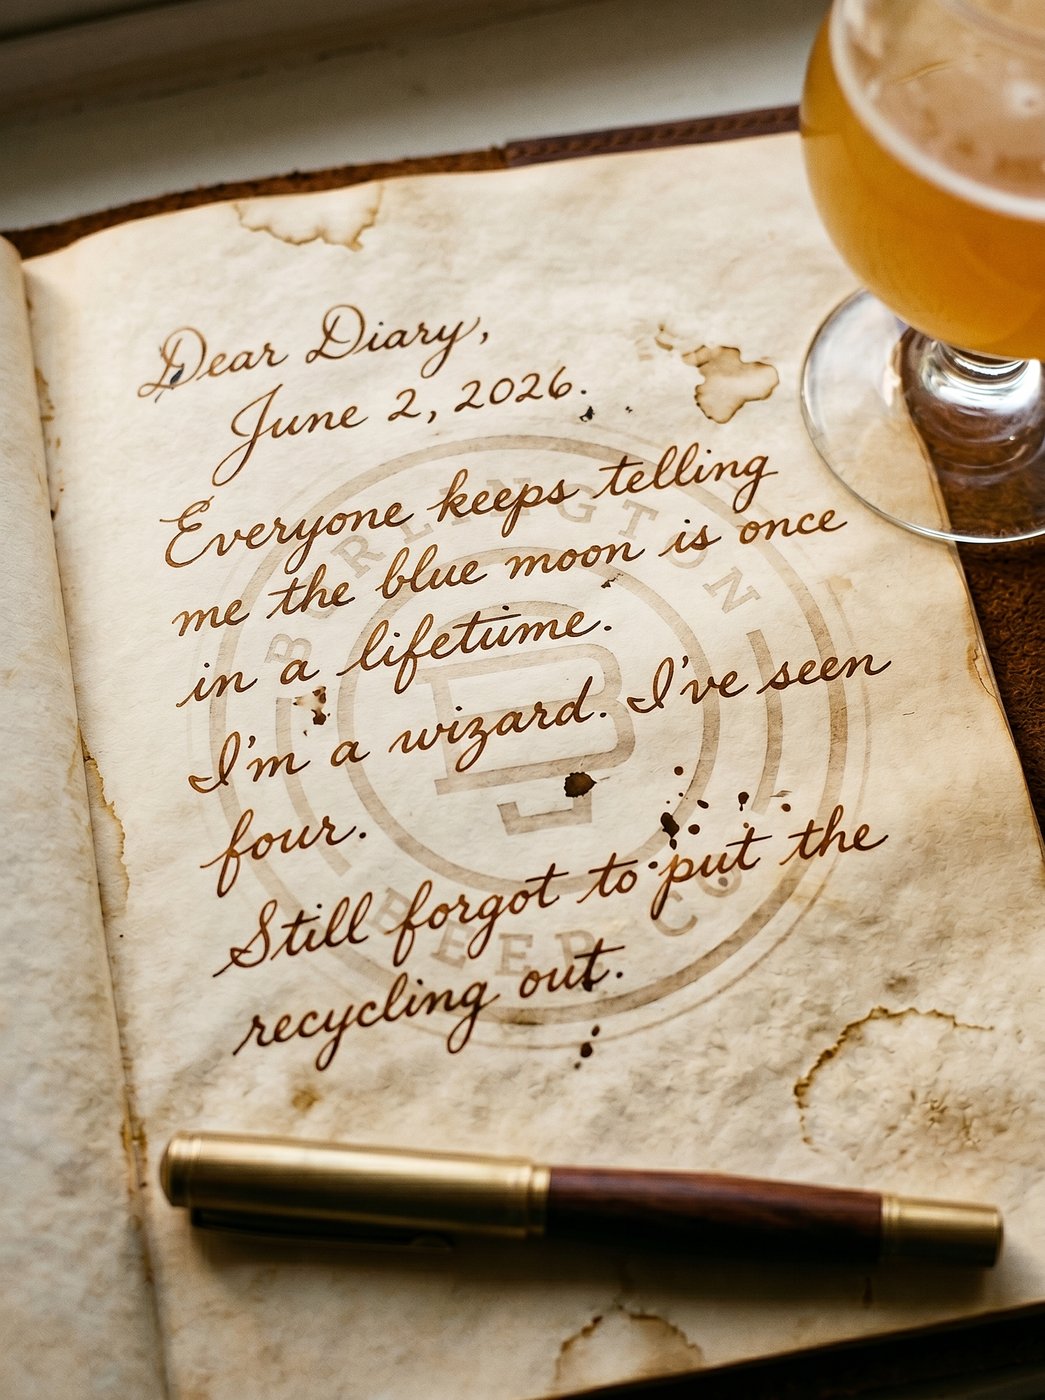 Dear Diary,
June 2, 2026.
Everyone keeps telling
me the blue moon is once
in a lifetime.
I'm a wizard. I've seen
four.
Still forgot to put the
recycling out.
BURLINGTON
B
BEER CO